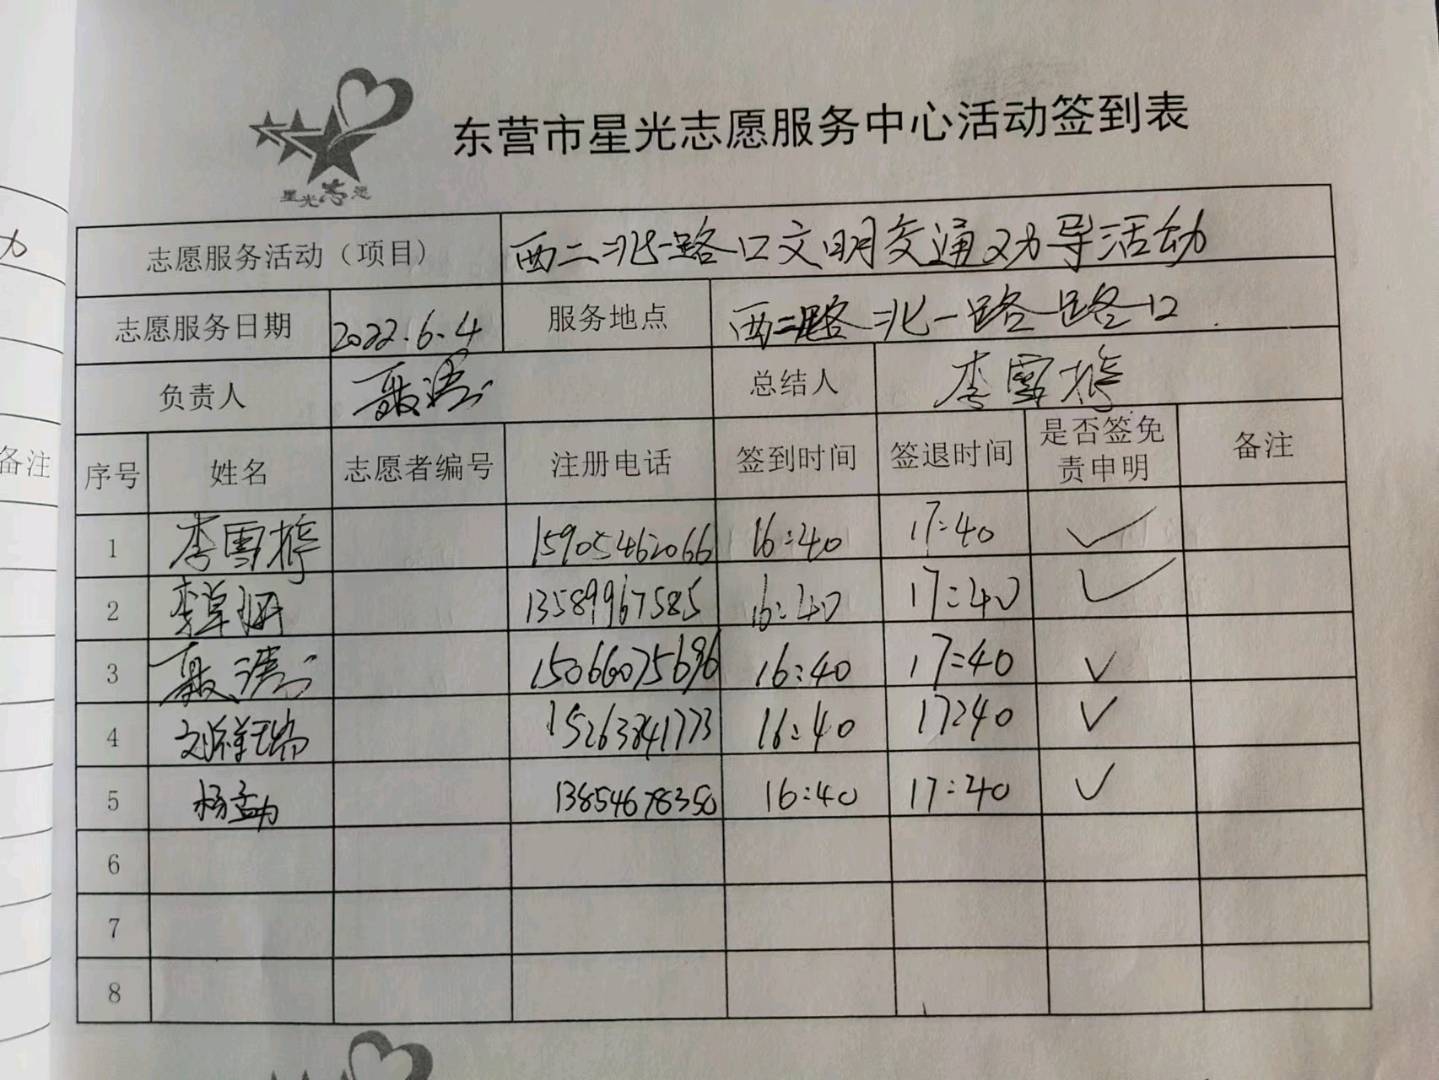 东营市星光志愿服务中心活动签到表
星光志愿
志愿服务活动（项目） 西二北一路口文明交通劝导活动
志愿服务日期 2022.6.4 服务地点 西二路北一路路口
负责人 聂涛 总结人 李雪梅
序号 姓名 志愿者编号 注册电话 签到时间 签退时间 是否签免责申明 备注
1 李雪梅 15905462066 16:40 17:40 ✓
2 13589967585 16:40 17:40 ✓
3 聂涛 15066075696 16:40 17:40 ✓
4 刘祥瑞 15263841773 16:40 17:40 ✓
5 杨孟 13854678350 16:40 17:40 ✓
6
7
8
备注